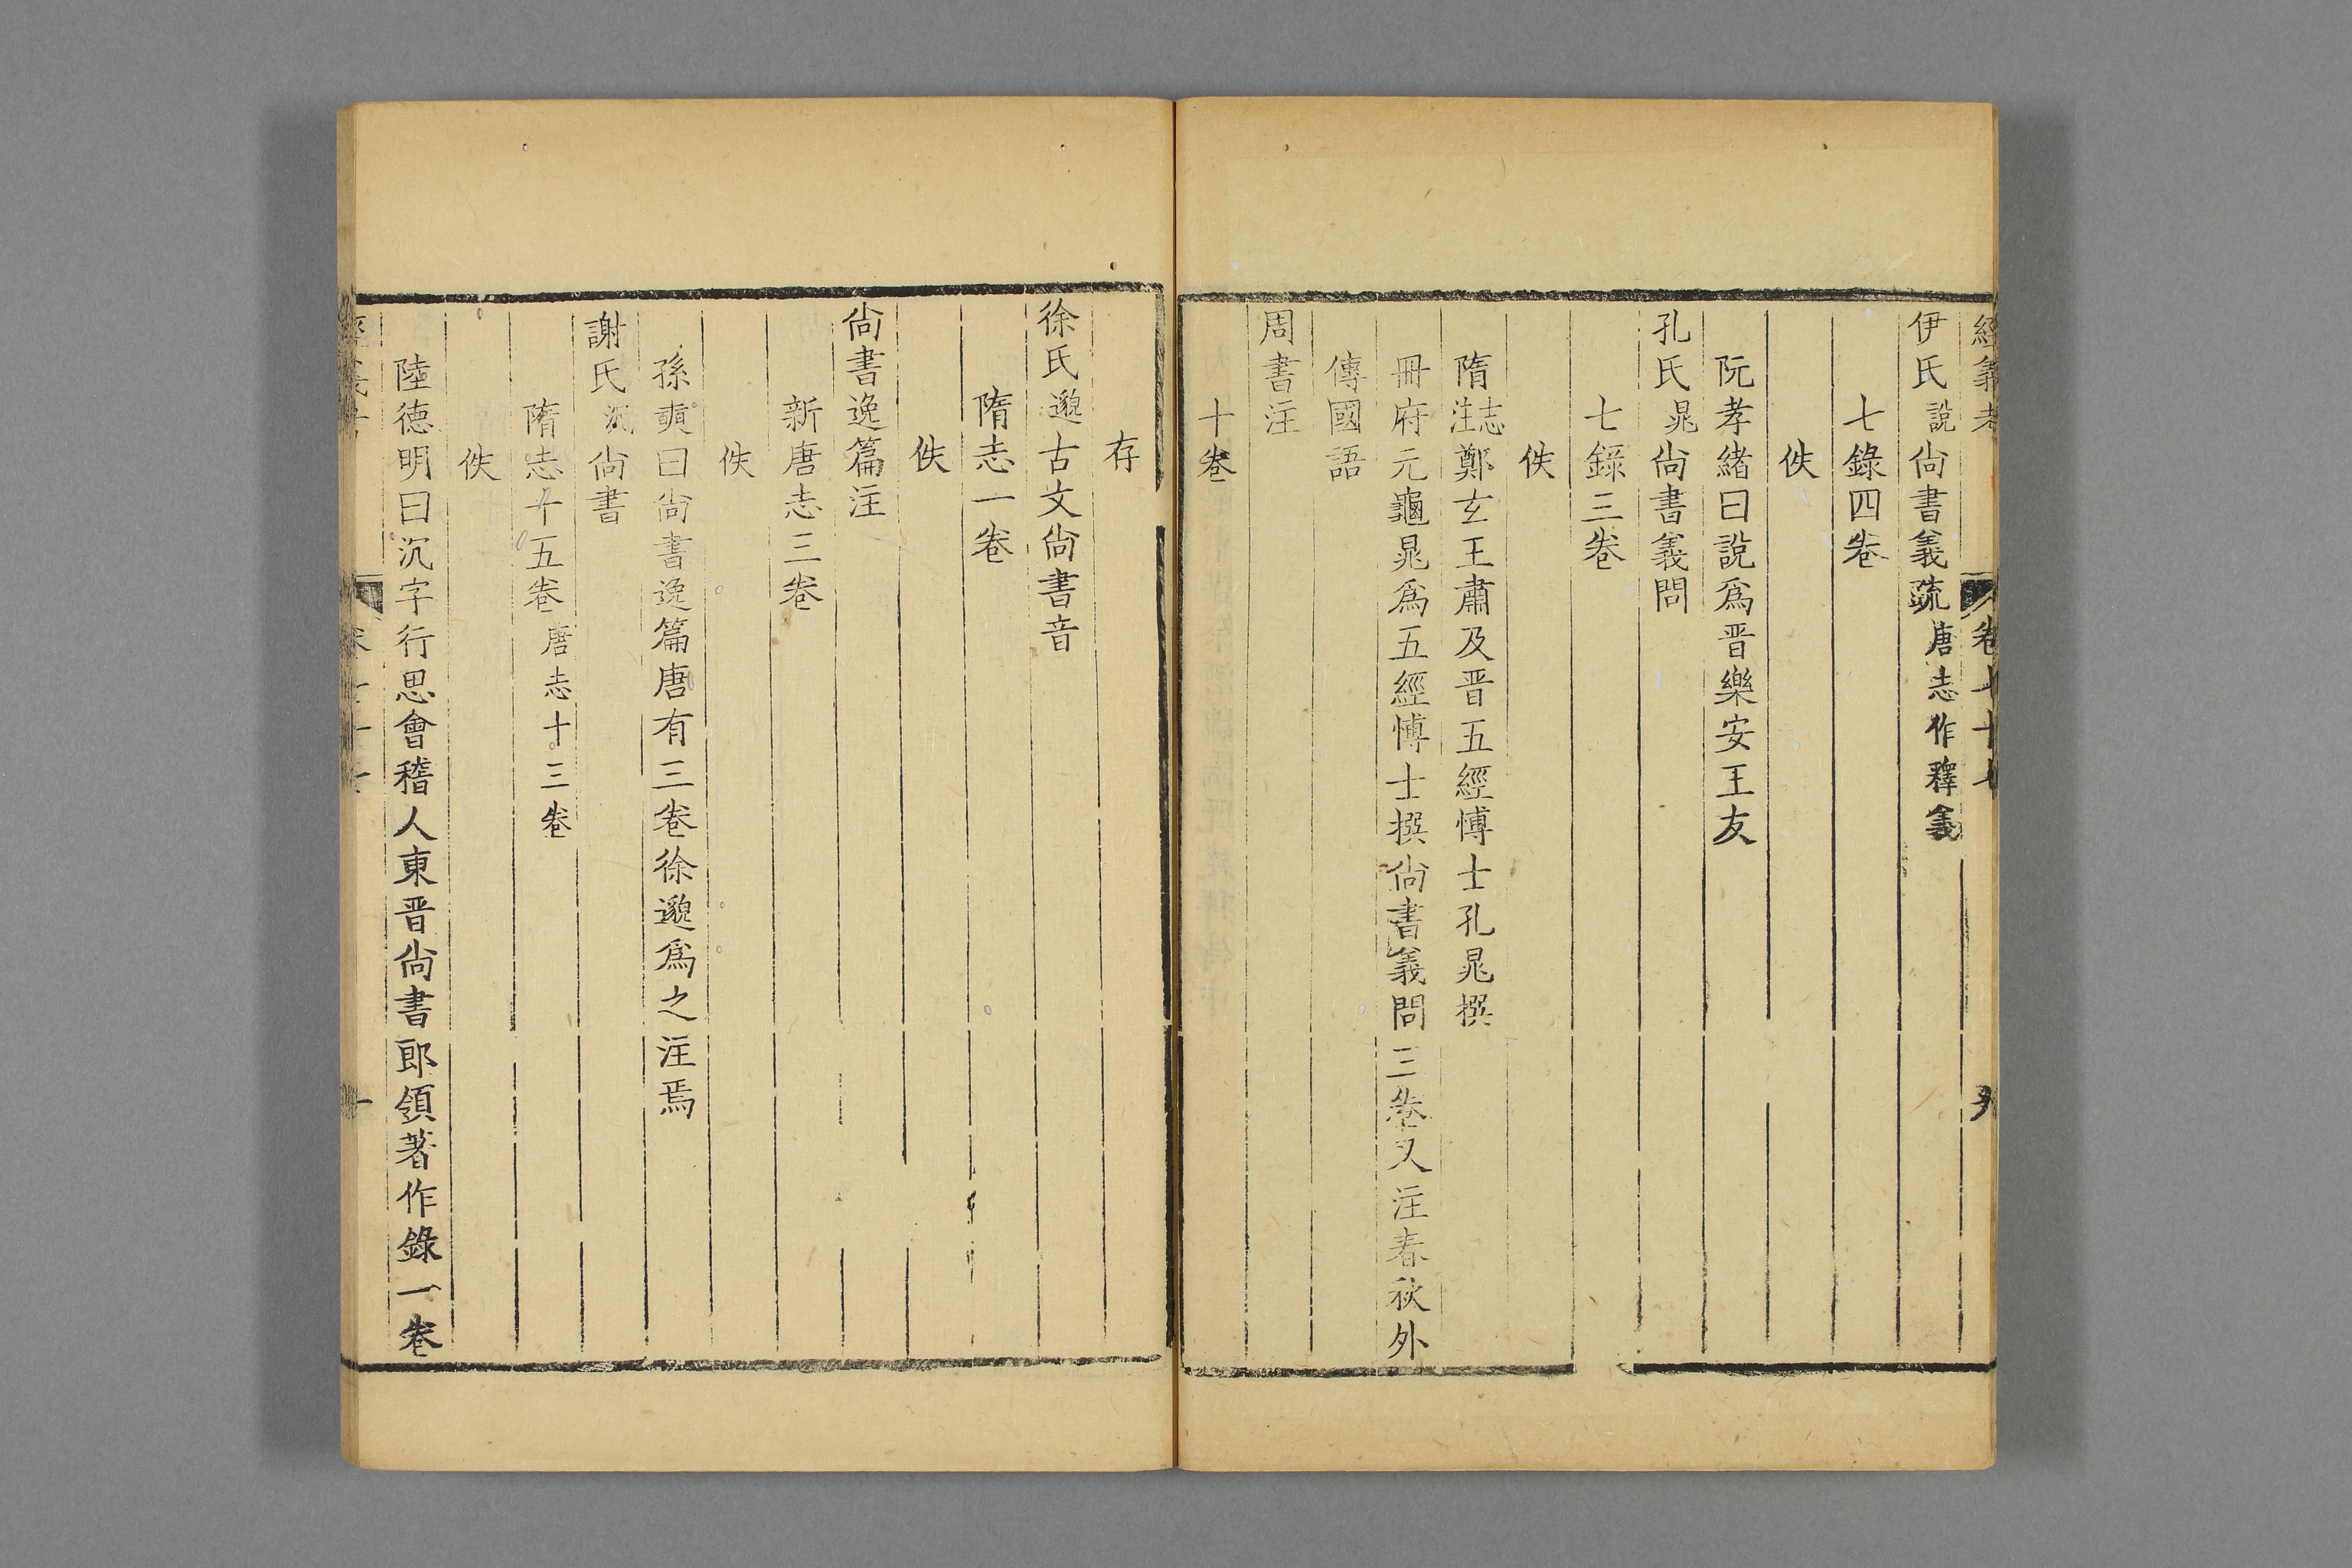 經義考 卷七十七 九
伊氏說尚書義疏唐志作釋義
七錄四卷
佚
阮孝緒曰說爲晋樂安王友
孔氏晁尚書義問
七錄三卷
佚
隋志注鄭玄王肅及晋五經愽士孔晁撰
冊府元龜晁爲五經愽士撰尚書義問三卷又注春秋外
傳國語
周書注
十卷
存
徐氏邈古文尚書音
隋志一卷
佚
尚書逸篇注
新唐志三卷
佚
孫奭曰尚書逸篇唐有三卷徐邈爲之注焉
謝氏沉尚書
隋志十五卷唐志十三卷
佚
陸德明曰沉字行思會稽人東晋尚書郎領著作錄一卷